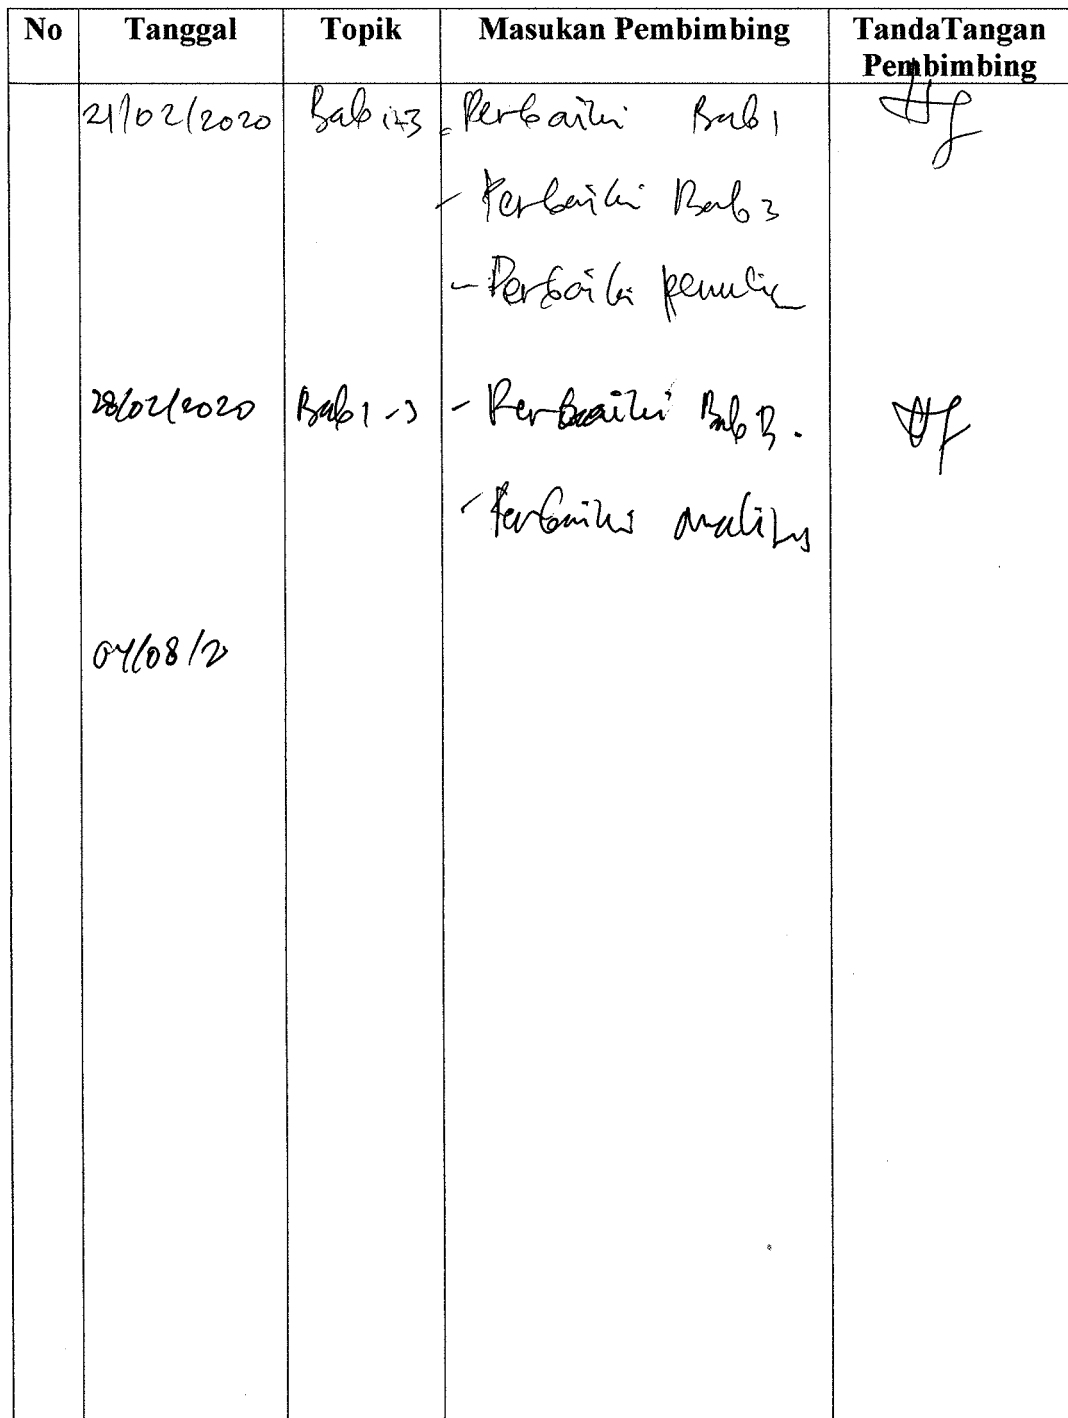 No Tanggal Topik Masukan Pembimbing TandaTangan
Pembimbing
21/02/2020 Bab 1+3 - Perbaiki Bab 1
- Perbaiki Bab 3
- Perbaiki penulis
28/02/2020 Bab 1-3 - Perbaiki Bab 3.
- Perbaiki analisis
04/08/20